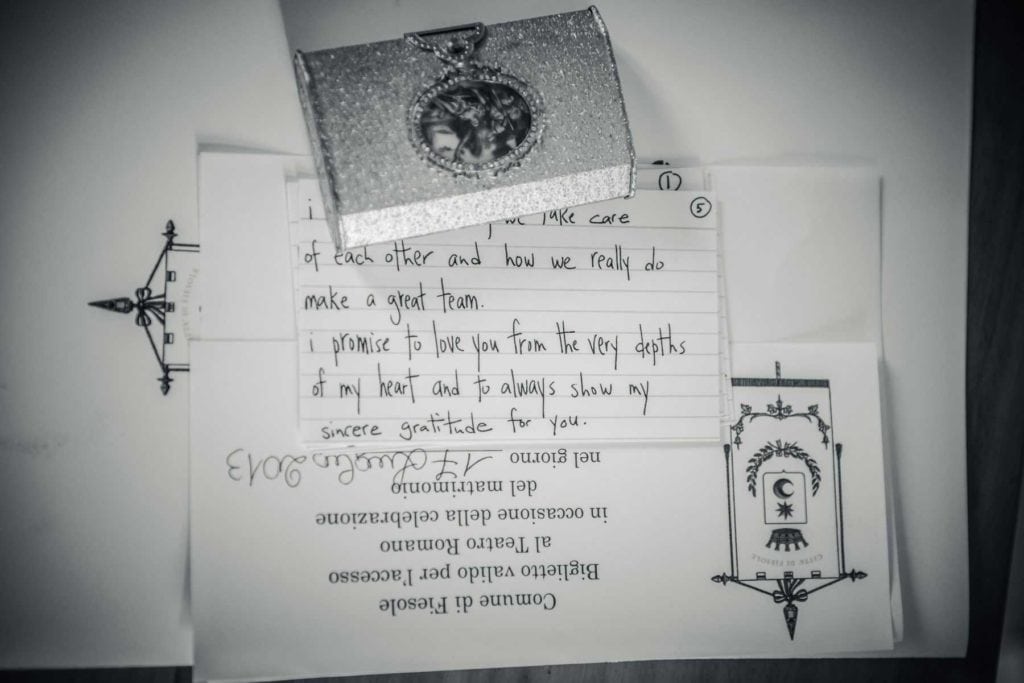 1
5
i
we take care
of each other and how we really do
make a great team.
i promise to love you from the very depths
of my heart and to always show my
sincere gratitude for you.
Comune di Fiesole
Biglietto valido per l'accesso
al Teatro Romano
in occasione della celebrazione
del matrimonio
nel giorno 17 Luglio 2013
CITTA' DI FIESOLE